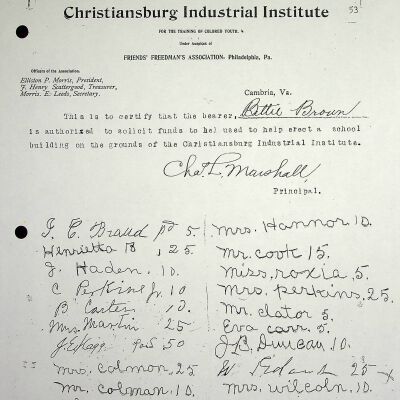 53
Christiansburg Industrial Institute
FOR THE TRAINING OF COLORED YOUTH.
Under Auspices of
FRIENDS' FREEDMAN'S ASSOCIATION- Philadelphia, Pa.
Officers of the Association.
Elliston P. Morris, President,
J. Henry Scattergood, Treasurer,
Morris. E. Leeds, Secretary.
Cambria, Va.
This is to certify that the bearer, Bettie Brown
is authorized to solicit funds to hel used to help erect a school
building on the grounds of the Caristiansburg Industrial Institute.
Chas. L. Marshall
Principal.
J. C. Braud pd 5.
Henrietta B , 25
J. Haden. 10.
C Perkins Jr. 10
B Carter 10.
Mrs. Martin 25
50
mrs. colmon. 25
mr. colman. 10
mrs. Hannor. 10.
mr. cook 15.
miss. roxia. 5.
mrs. perkins. 25.
mr. clator 5.
Eva carr. 5.
J. B. Duncan. 10
W 25
mrs. wilcoln. 10.